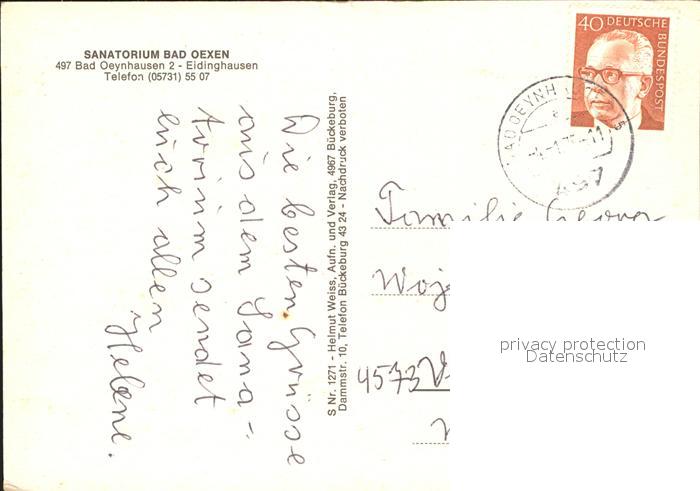 SANATORIUM BAD OEXEN
497 Bad Oeynhausen 2 - Eidinghausen
Telefon (05731) 55 07
Die besten Grüsse
aus dem Sana-
torium sendet
euch allen
Helene.
S Nr. 1271 - Helmut Weiss, Aufn. und Verlag, 4967 Bückeburg,
Dammstr. 10, Telefon Bückeburg 43 24 - Nachdruck verboten
40 DEUTSCHE
BUNDESPOST
BAD OEYNH
Familie
4573
privacy protection
Datenschutz